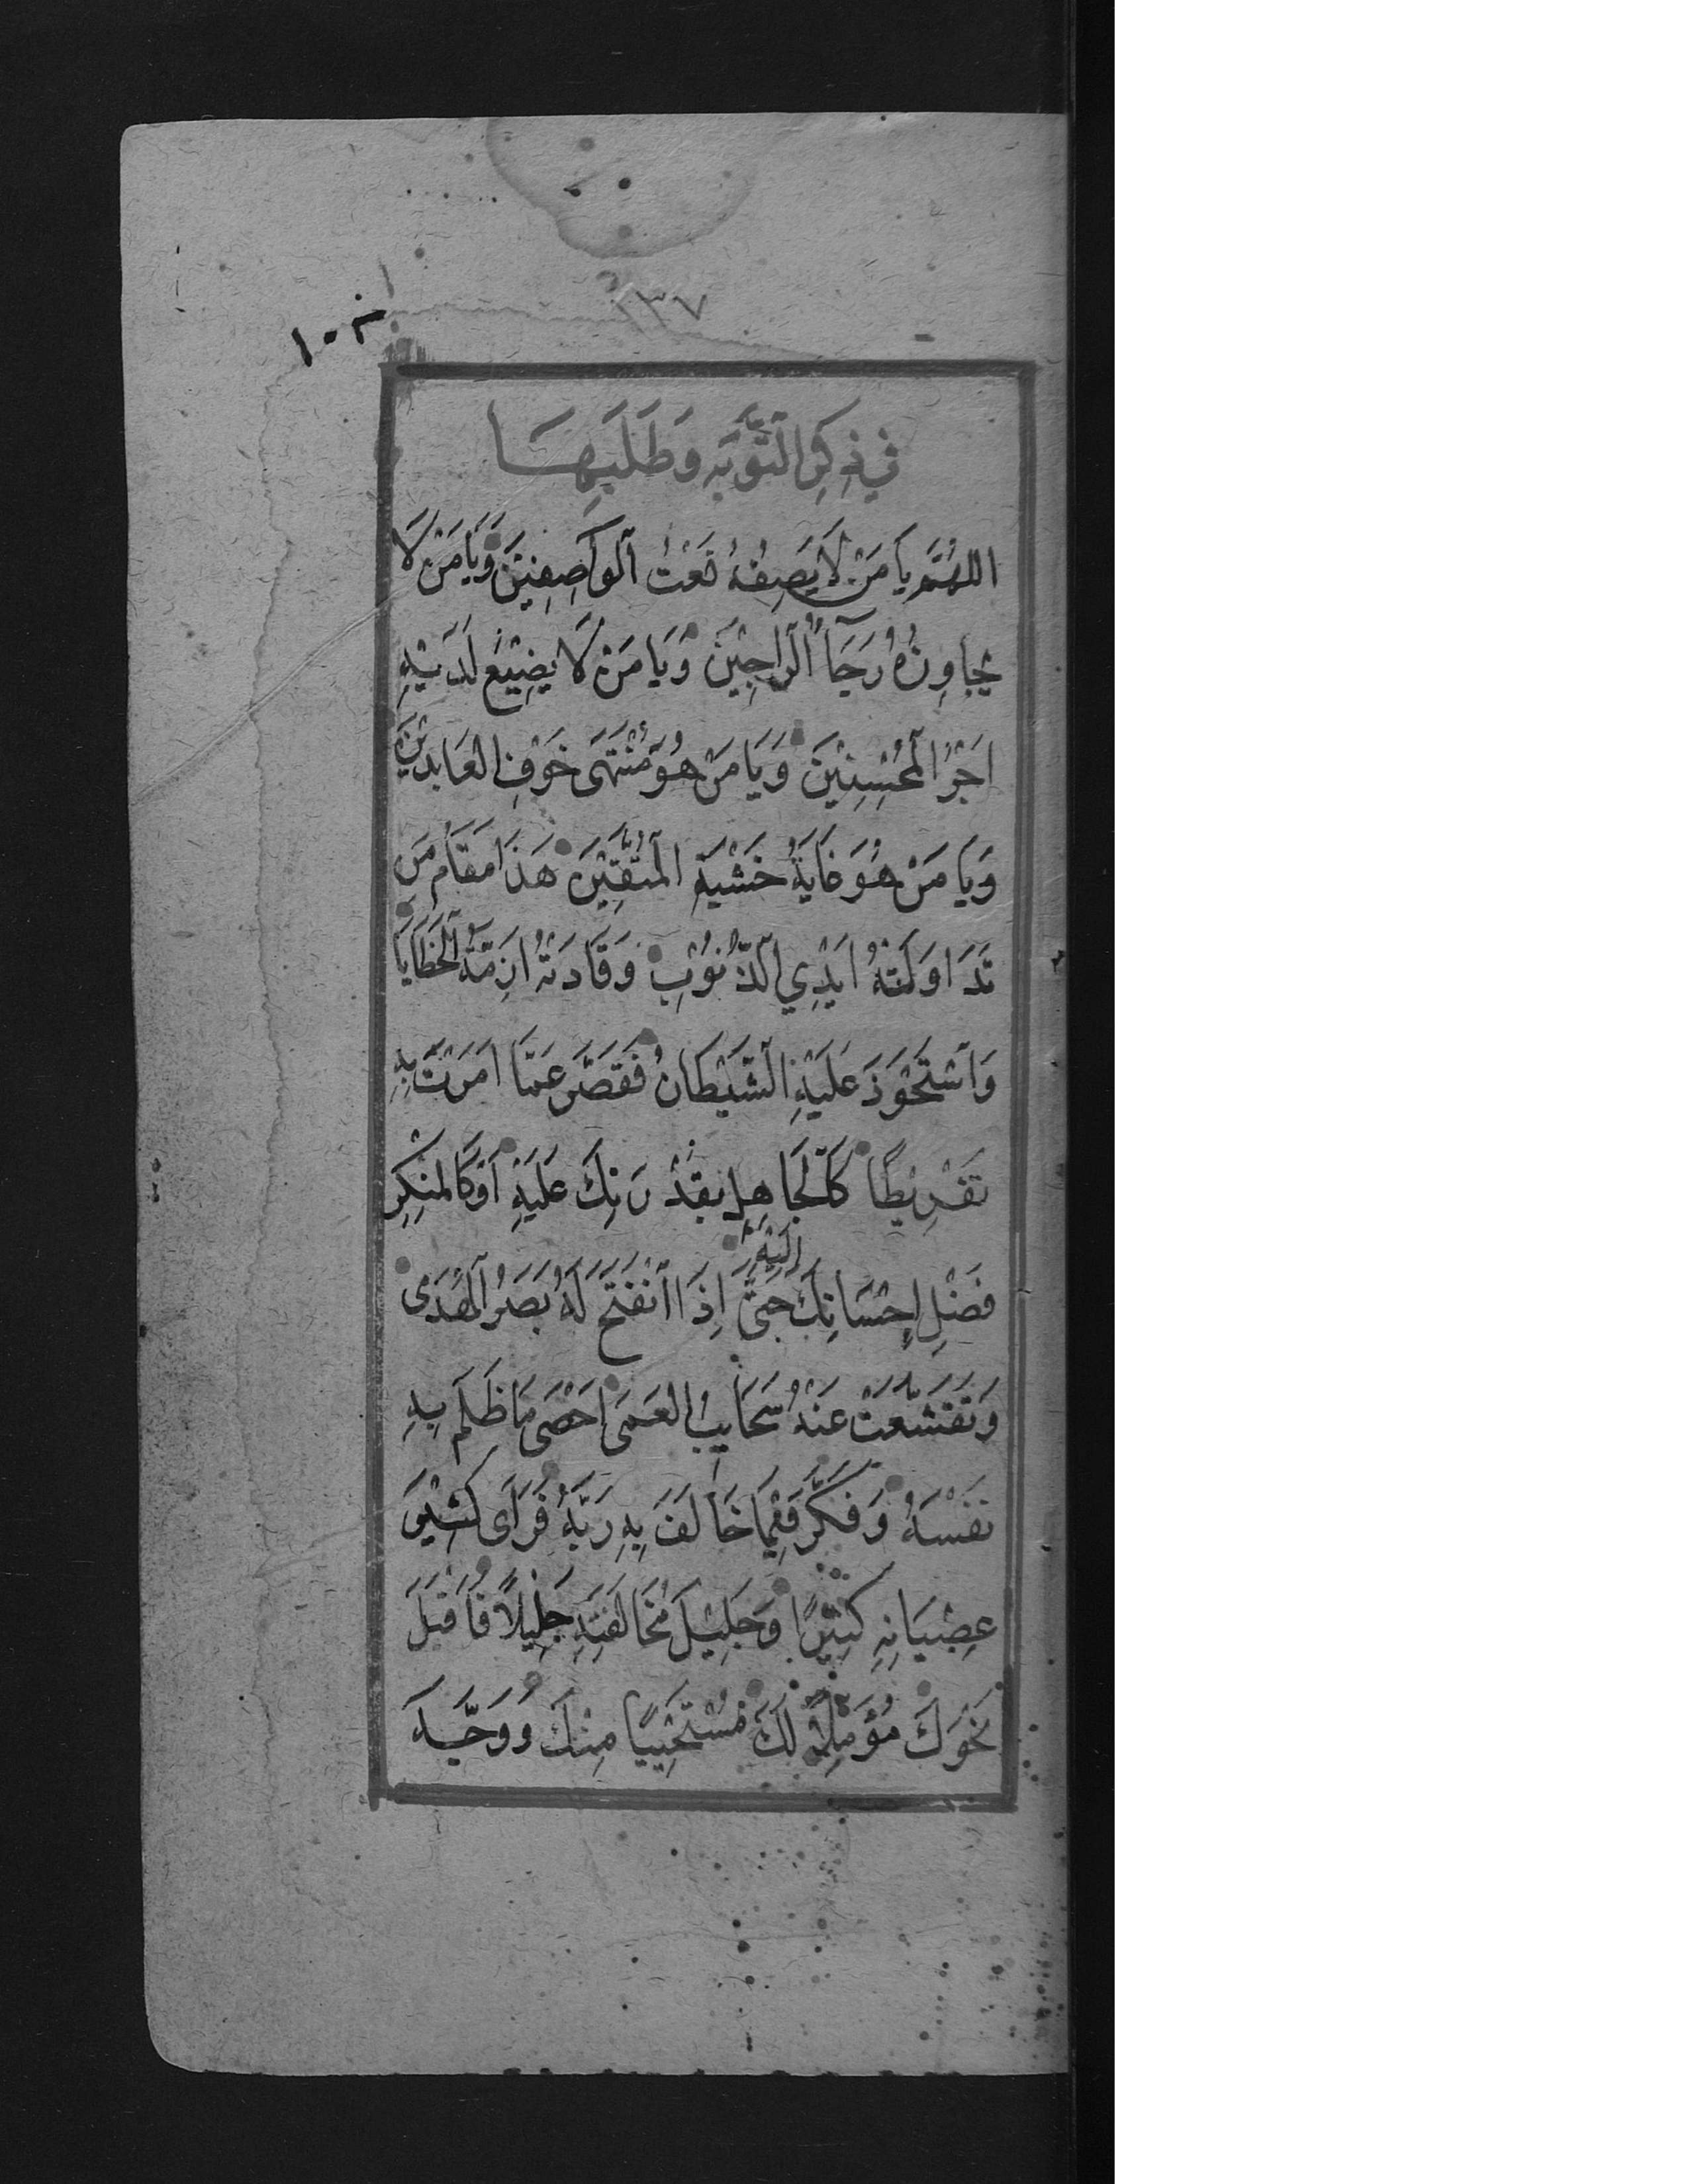 ١٣٧
في ذِكِرِ التَّوْبَه وَطَلَبِهَا
اللهُمَّ يَا مَنْ لَا يَصِفُهُ نَعْتُ الوَاصِفِيْنَ وَيَا مَنْ لَا
يُجَاوِزُهُ رَجَآءُ الرَّاجِيْنَ وَيَا مَنْ لَا يَضِيْعُ لَدَيْهِ
اَجْرُ الْمُحْسِنِيْنَ وَيَا مَنْ هُوَ مُنْتَهَى خَوْفِ العَابِدِيْنَ
وَيَا مَنْ هُوَ غَايَةُ خَشْيَةِ الْمُتَّقِيْنَ هَذَا مَقَامُ مَن
تَدَاوَلَتْهُ اَيْدِي الذُّنُوْبِ وَقَادَتْهُ اَزِمَّةُ الْخَطَايَا
وَاسْتَحْوَذَ عَلَيْهِ الشَّيْطَانُ فَقَصَّرَ عَمَّا اَمَرْتَ بِهِ
تَفْرِيْطًا كَالْجَاهِلِ بِقُدْرَتِكَ عَلَيْهِ اَوْ كَالْمُنْكِرِ
فَضْلِ اِحْسَانِكَ اِلَيْهِ حَتَّى اِذَا انْفَتَحَ لَهُ بَصَرُ الْهُدَى
وَتَقَشَّعَتْ عَنْهُ سَحَايِبُ العَمَى اَحْصَى مَا ظَلَمَ بِهِ
نَفْسَهُ وَفَكَّرَ فِيْمَا خَالَفَ بِهِ رَبَّهُ فَرَاَى كَثِيْرَ
عِصْيَانِهِ كَثِيْرًا وَجَلِيْلَ مُخَالَفَتِهِ جَلِيْلًا فَاَقْبَلَ
نَحْوَكَ مُؤَمِّلًا لَكَ مُسْتَحْيِيًا مِنْكَ وَوَجَّهَ